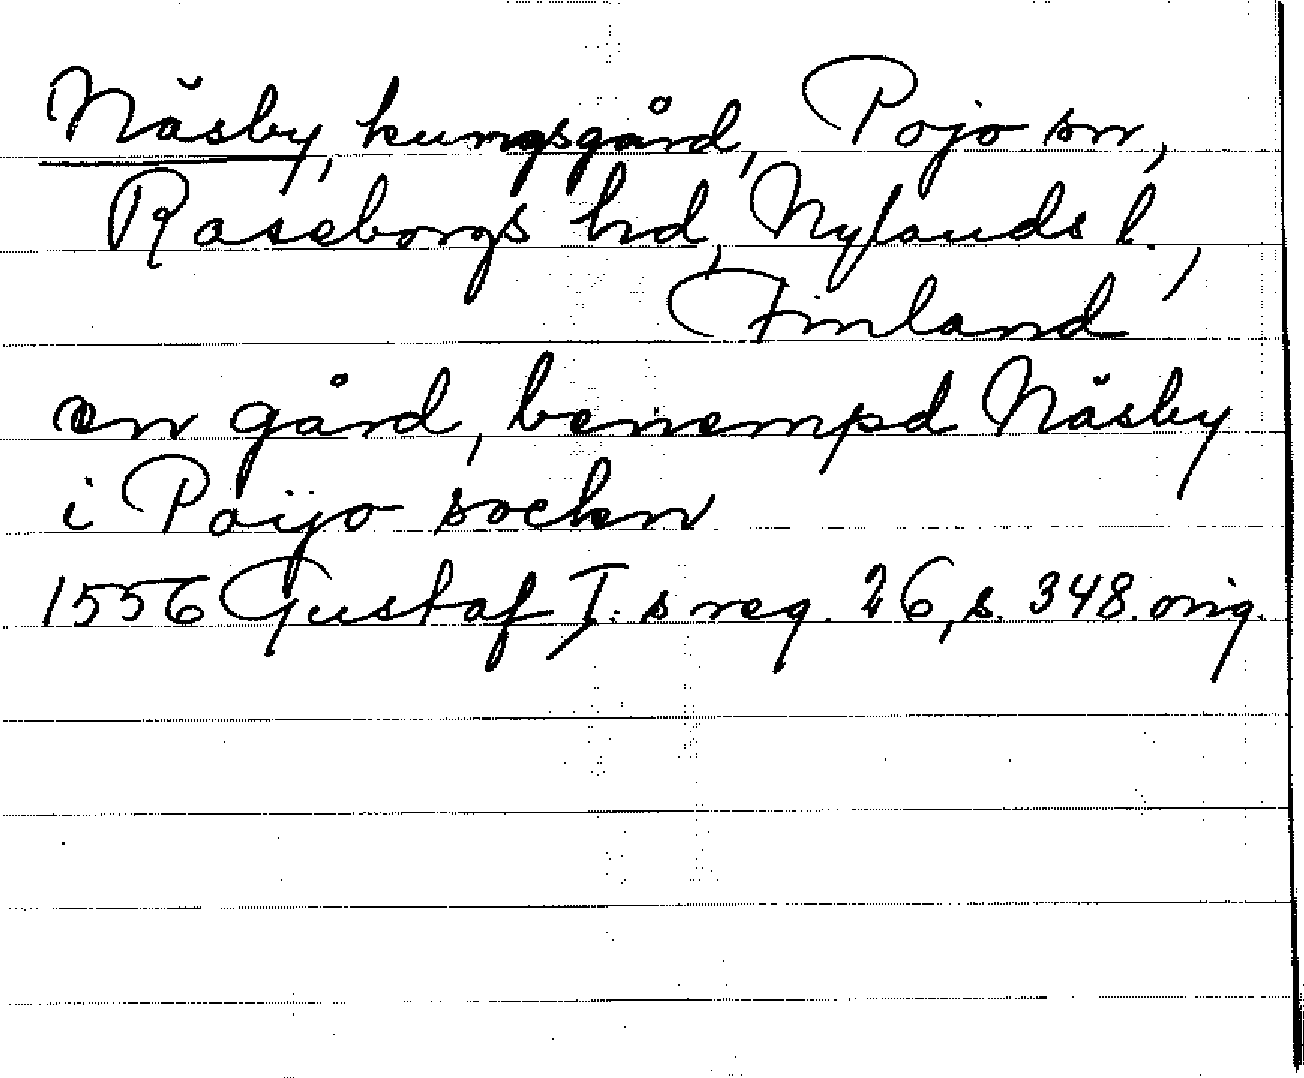 Näsby, kungsgård, Pojo sn,
Raseborgs hd, Nylands l.,
Finland
en gård, benempd Näsby
i Poijo sockn
1556 Gustaf I:s reg. 26, s. 348. orig.